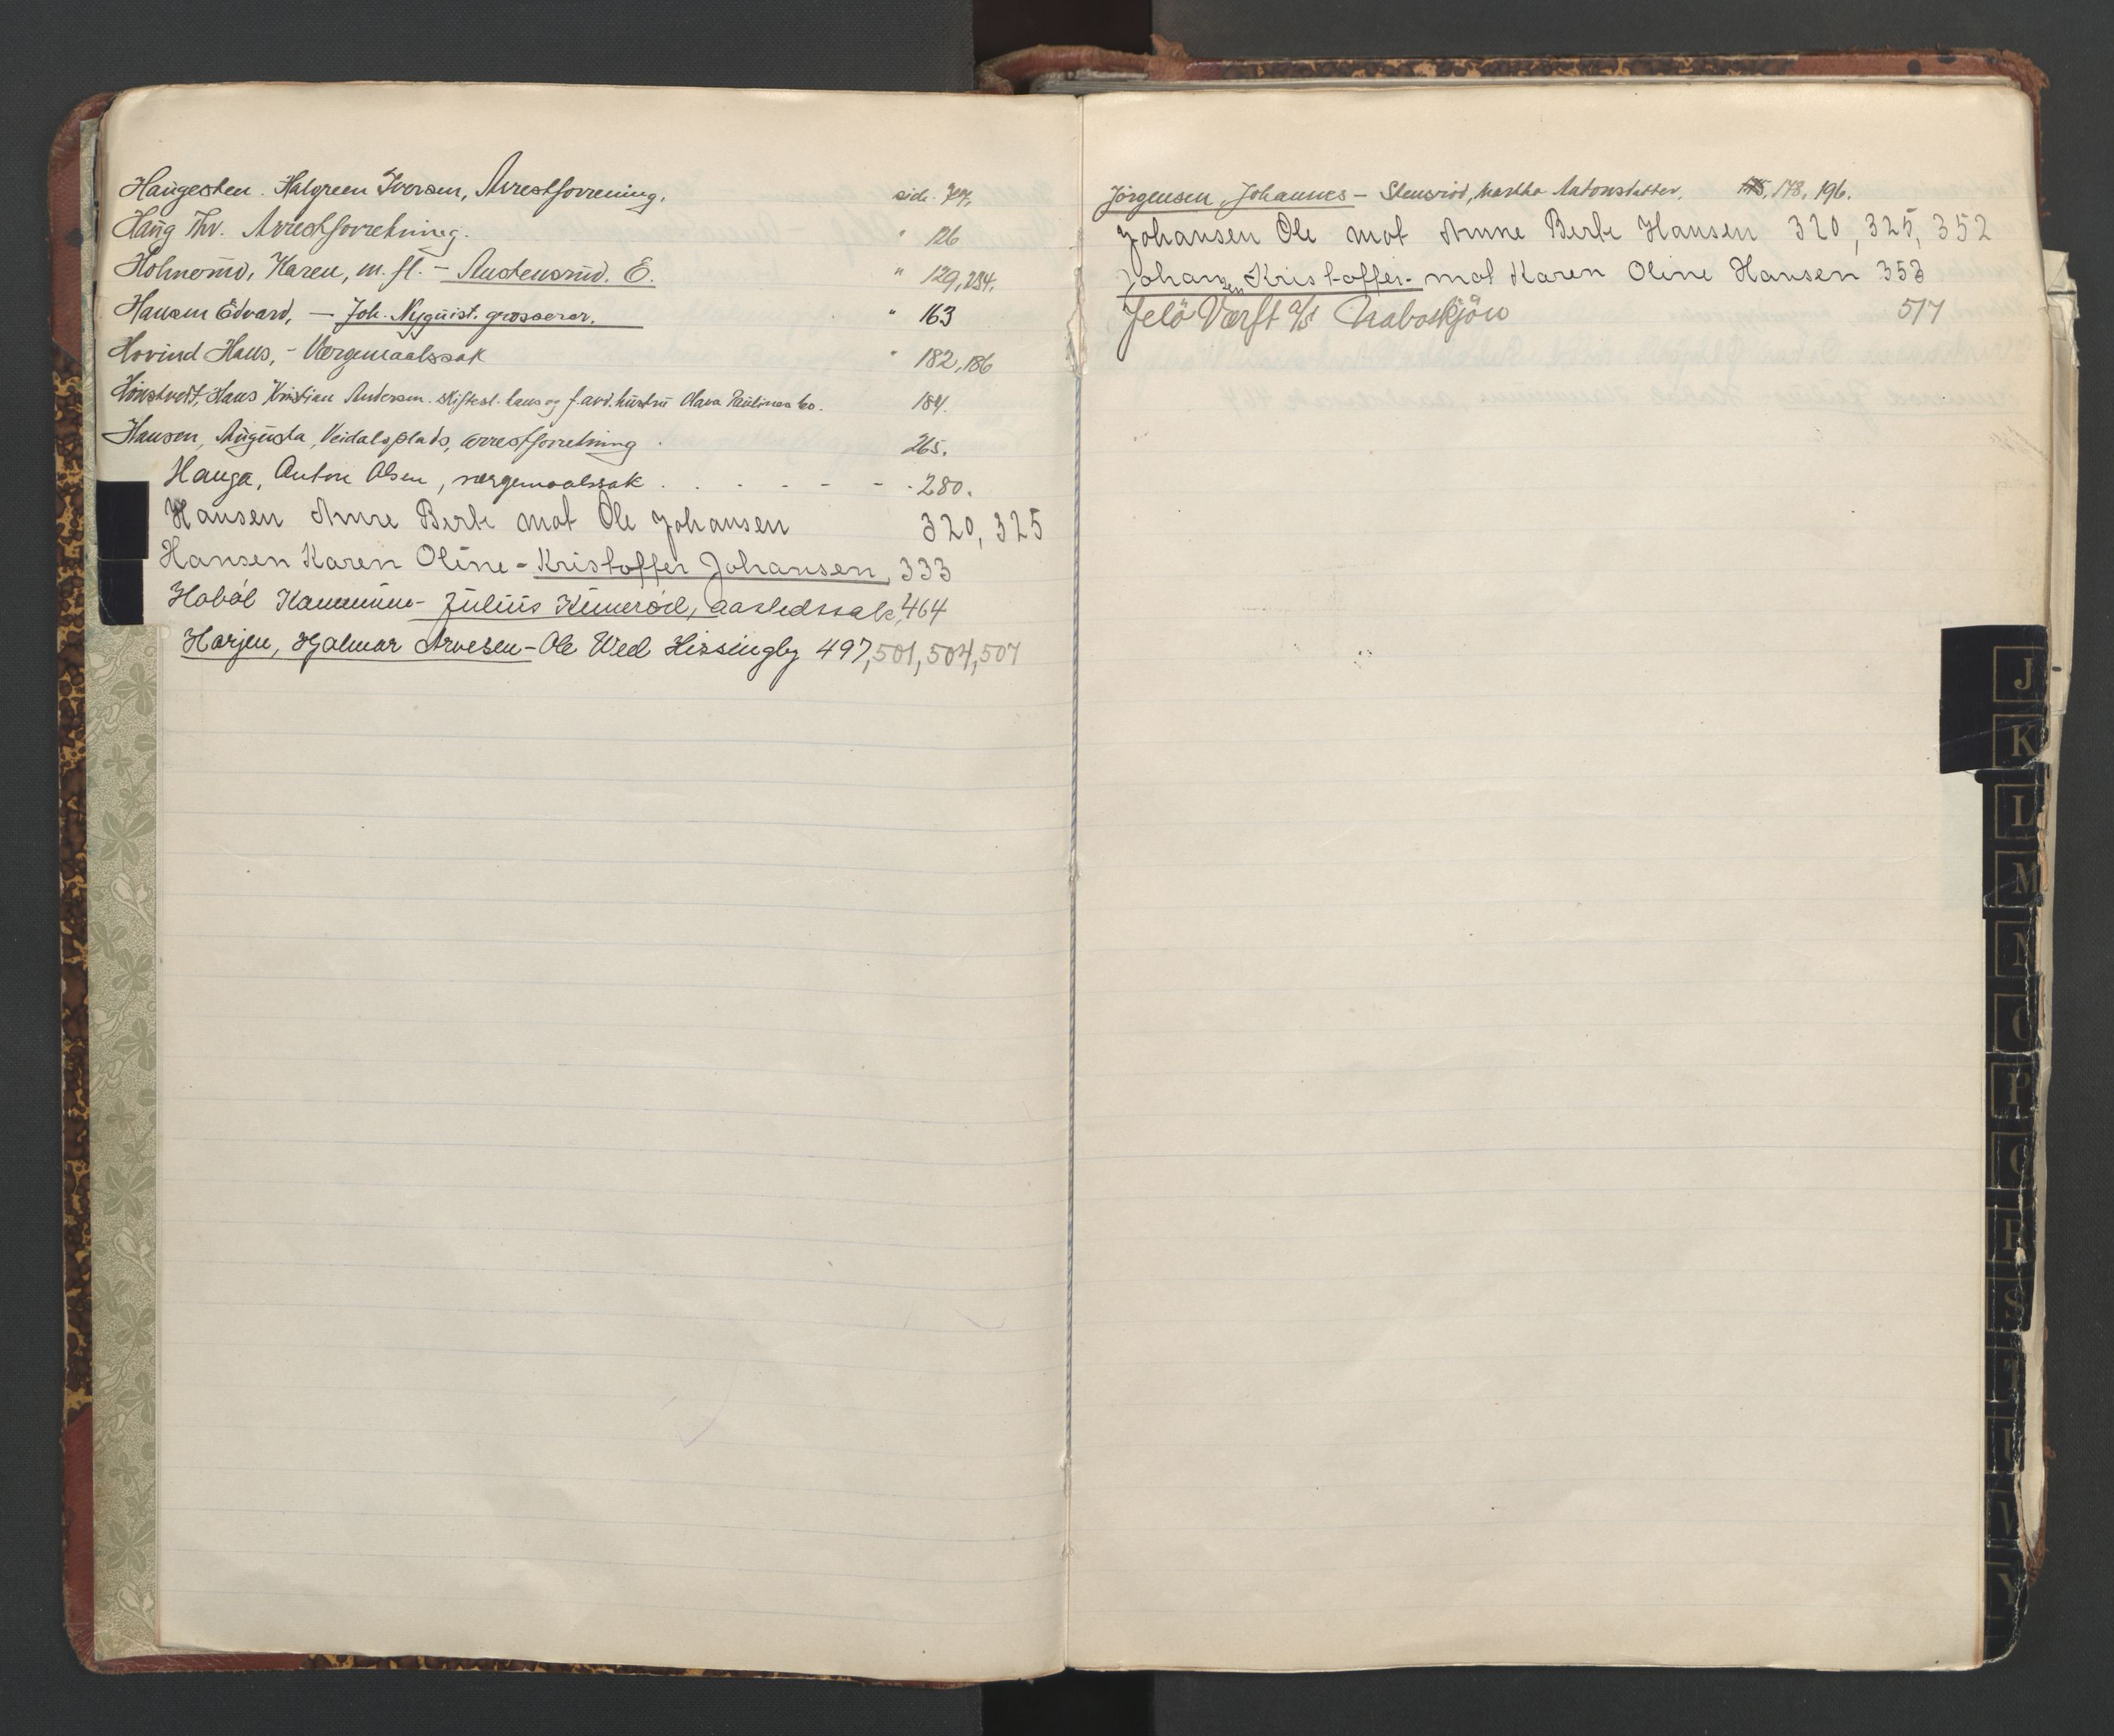 Haugesten. Halgreen Iversen, Arrestforrening. side. 77.
Haug Thv. Arrestforretning. " 126
Holmerud, Karen, m. fl. - Austensrud. E. " 129, 234.
Hansen Edvard, - Joh. Nyquist. grosserer. " 163
Hovind Hans, - Værgemaalssak " 182, 186
Haus Kristian Andersen. skiftesl. hans og f. avd. hustru Olava Paulines bo. 184.
Hansen, Augusta, Veidalsplads, arrestforretning . 265.
Hauga, Anton Olsen, værgemaalssak . . . - - - . 280.
Hansen Anne Berte mot Ole Johansen 320, 325
Hansen Karen Oline - Kristoffer Johansen, 333
Hobøl Kommune - Julius Kimerød, aastedssak, 464
Harjen, Hjalmar Arvesen - Ole Wed Hissingby 497, 501, 504, 507
Jörgensen, Johannes - Stensrød, Martha Antonsdatter. 178, 196.
Johansen Ole mot Anne Berte Hansen 320, 325, 352
Johansen Kristoffer - mot Karen Oline Hansen 353
Jelö Værft a/s Naboskjøn 517
J
K
L
M
N
O
P
Q
R
S
T
U
V
Y